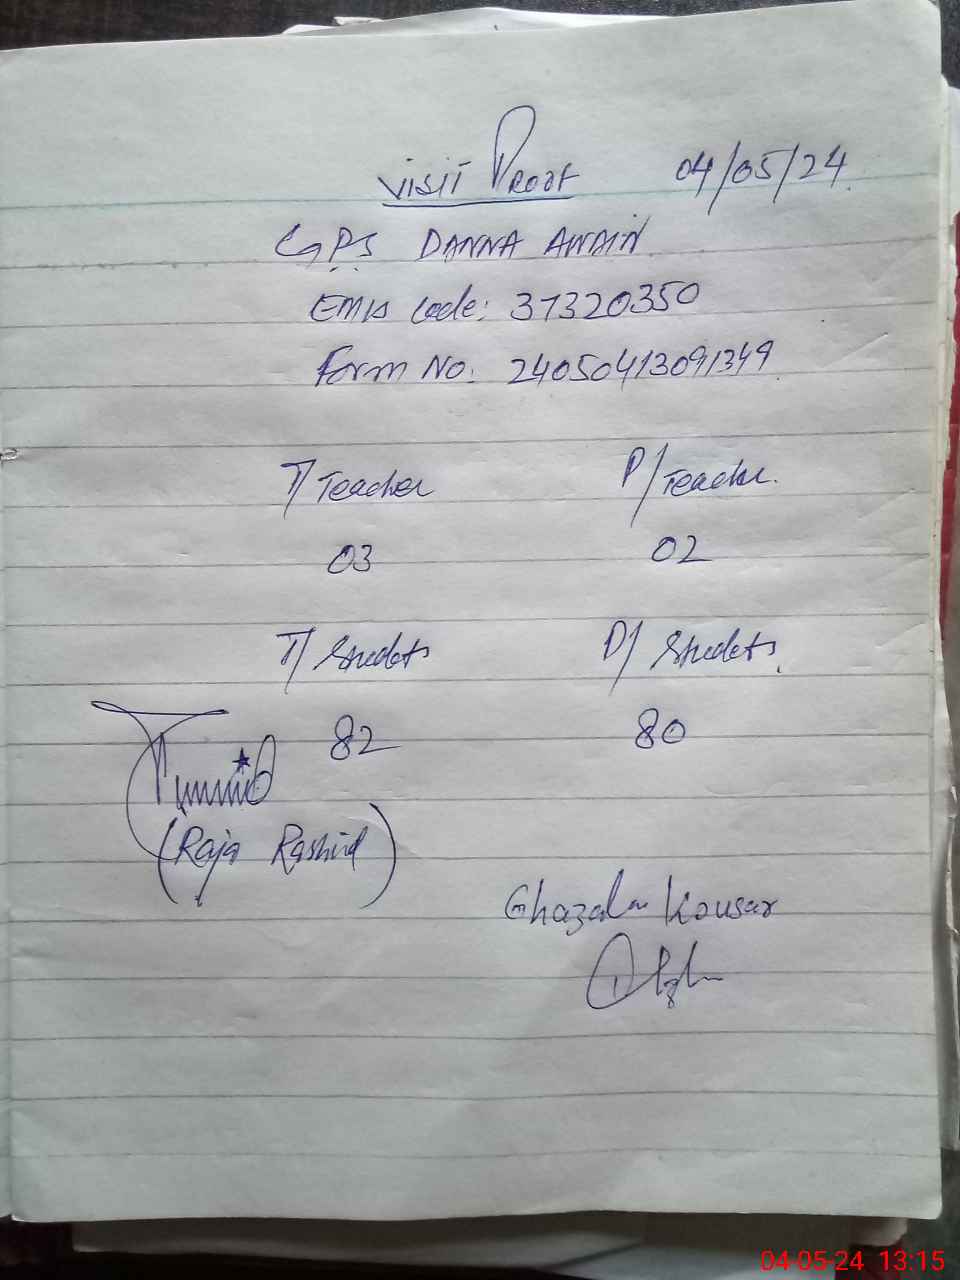 Visit Proof 04/05/24.
GPS DANNA AWAIN
EMIS Code: 37320350
Form No: 24050413091349
T/Teacher P/Teacher.
03 02
T/Students P/Students.
82 80
(Raja Rashid)
Ghazala Kousar
04-05-24 13:15